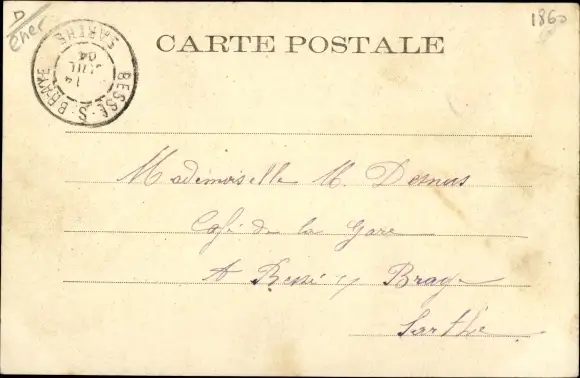 D
1860
CARTE POSTALE
BESSE-S-BRAYE
SARTHE
14
JUIL
04
Mademoiselle M. Demus
Café de la Gare
A Bessé s/ Braye
Sarthe